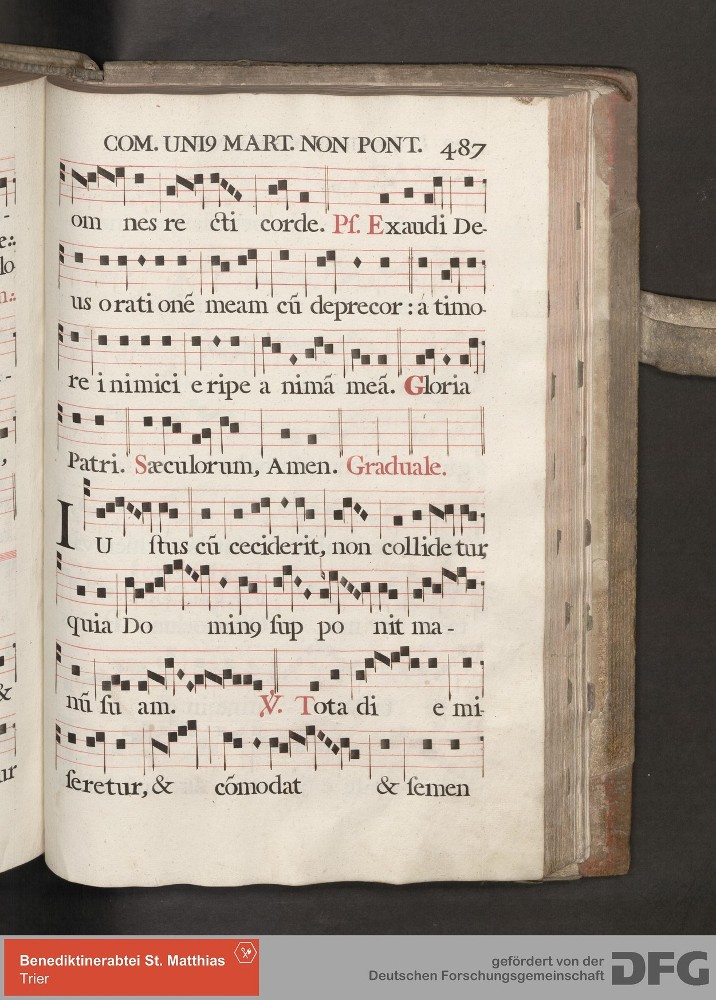 COM. UNI9 MART. NON PONT. 487
om nes re cti corde. Ps. Exaudi De-
us orationẽ meam cũ deprecor: a timo-
re inimici eripe animã meã. Gloria
Patri. Sæculorum, Amen. Graduale.
IUstus cũ ceciderit, non collidetur,
quia Do min9 sup po nit ma-
nũ su am. V. Tota di e mi-
seretur, & cõmodat & semen
e:.
lo
&
ur
Benediktinerabtei St. Matthias
Trier
gefördert von der
Deutschen Forschungsgemeinschaft DFG